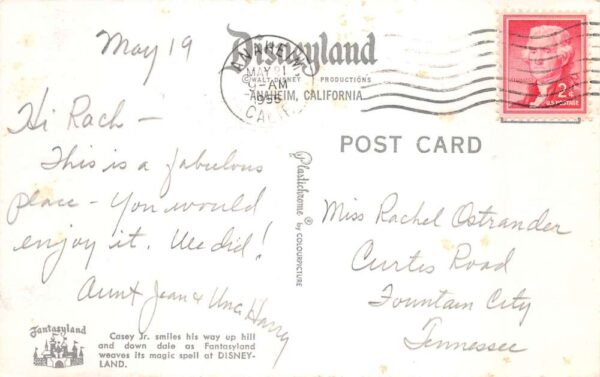 May 19
Disneyland
© WALT DISNEY PRODUCTIONS
ANAHEIM, CALIFORNIA
ANAHEIM
MAY 21
9-AM
CALIF.
2¢
U.S. POSTAGE
POST CARD
Hi Rach -
This is a fabulous
place - You would
enjoy it. We did!
Aunt Jean & Unc. Harry
Plastichrome ® by COLOURPICTURE
Miss Rachel Ostrander
Curtis Road
Fountain City
Tennessee
Fantasyland
Casey Jr. smiles his way up hill
and down dale as Fantasyland
weaves its magic spell at DISNEY-
LAND.